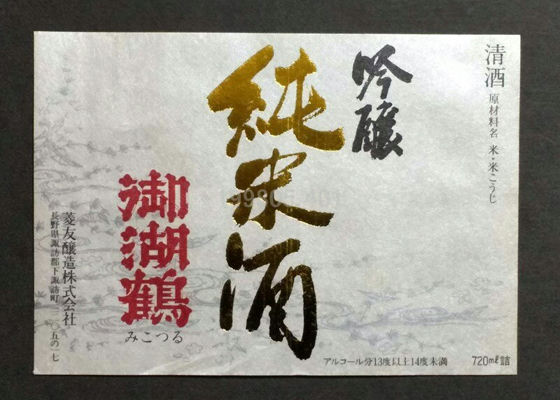 清酒 原材料名 米・米こうじ
吟醸
純米酒
御湖鶴
みこつる
菱友醸造株式会社
長野県諏訪郡下諏訪町三二〇五の一七
アルコール分13度以上14度未満
720ml詰